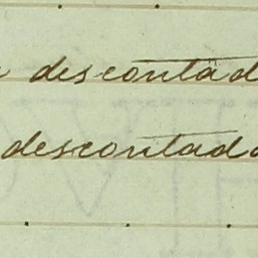 descontad
descontada